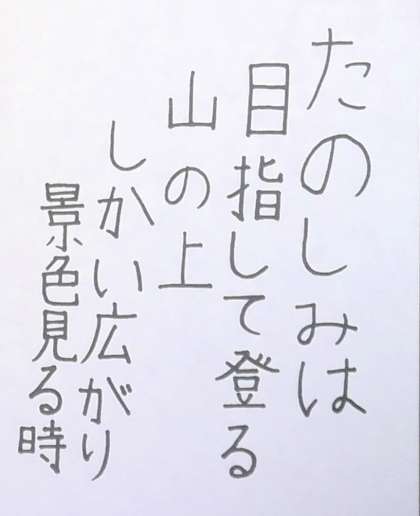 たのしみは
目指して登る
山の上
しかい広がり
景色見る時